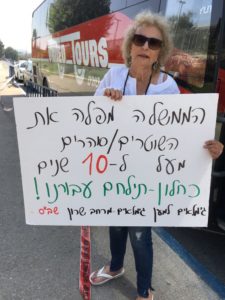 TOURS
הממשלה מפלה את
השוטרים/סהרים
מעל ל-10 שנים
כחלון-תילחם עבורנו!
גמלאים למען גמלאים-מרחב שרון שב"ס-